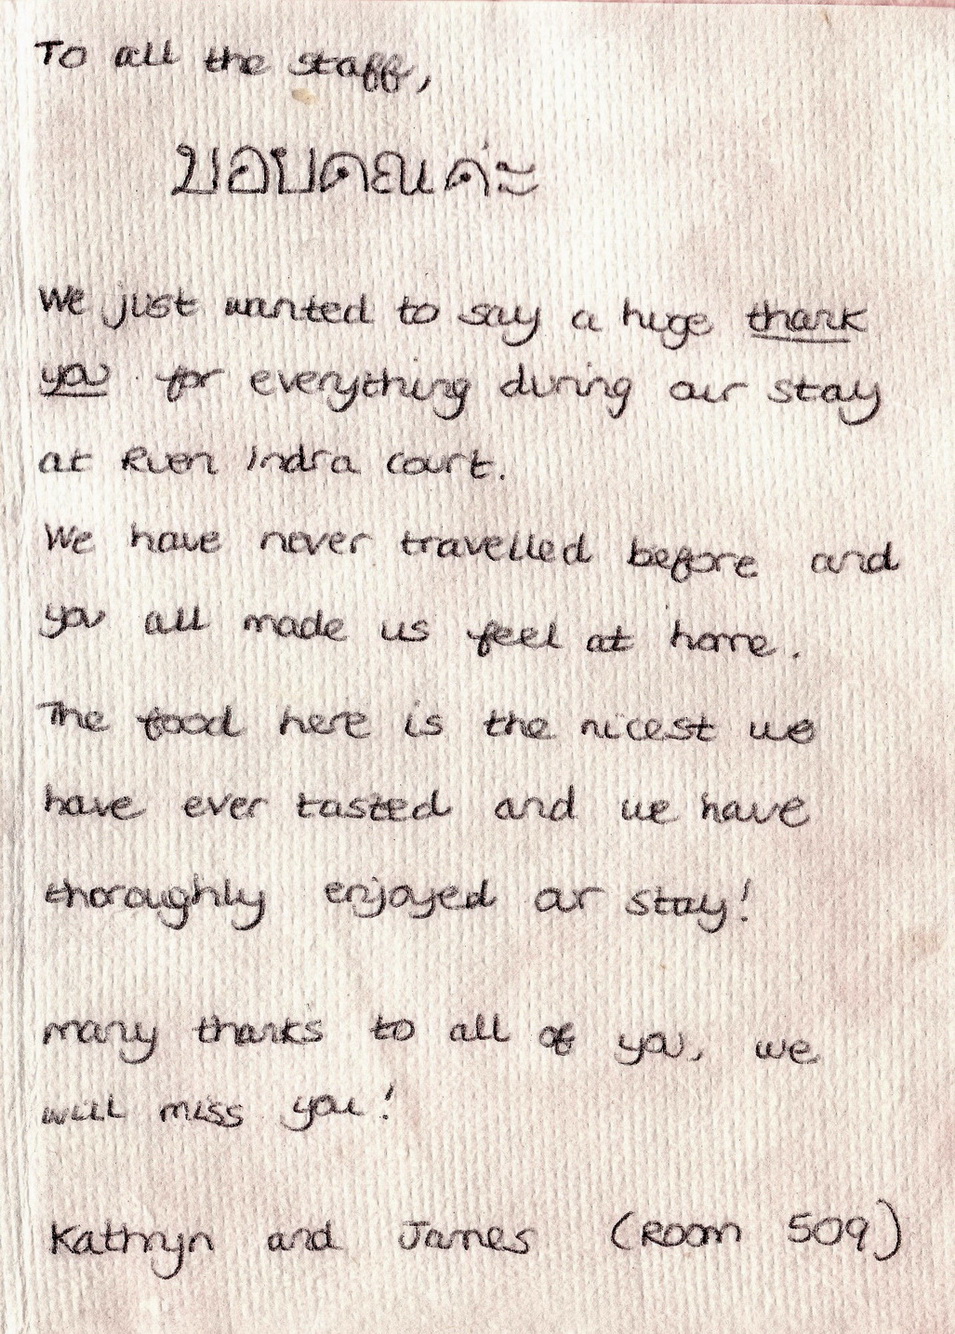 To all the staff,
ขอบคณค่ะ
We just wanted to say a huge thank
you for everything during our stay
at Ruen Indra Court.
We have never travelled before and
you all made us feel at home.
The food here is the nicest we
have ever tasted and we have
thoroughly enjoyed our stay!
Many thanks to all of you, we
will miss you!
Kathryn and James (Room 509)